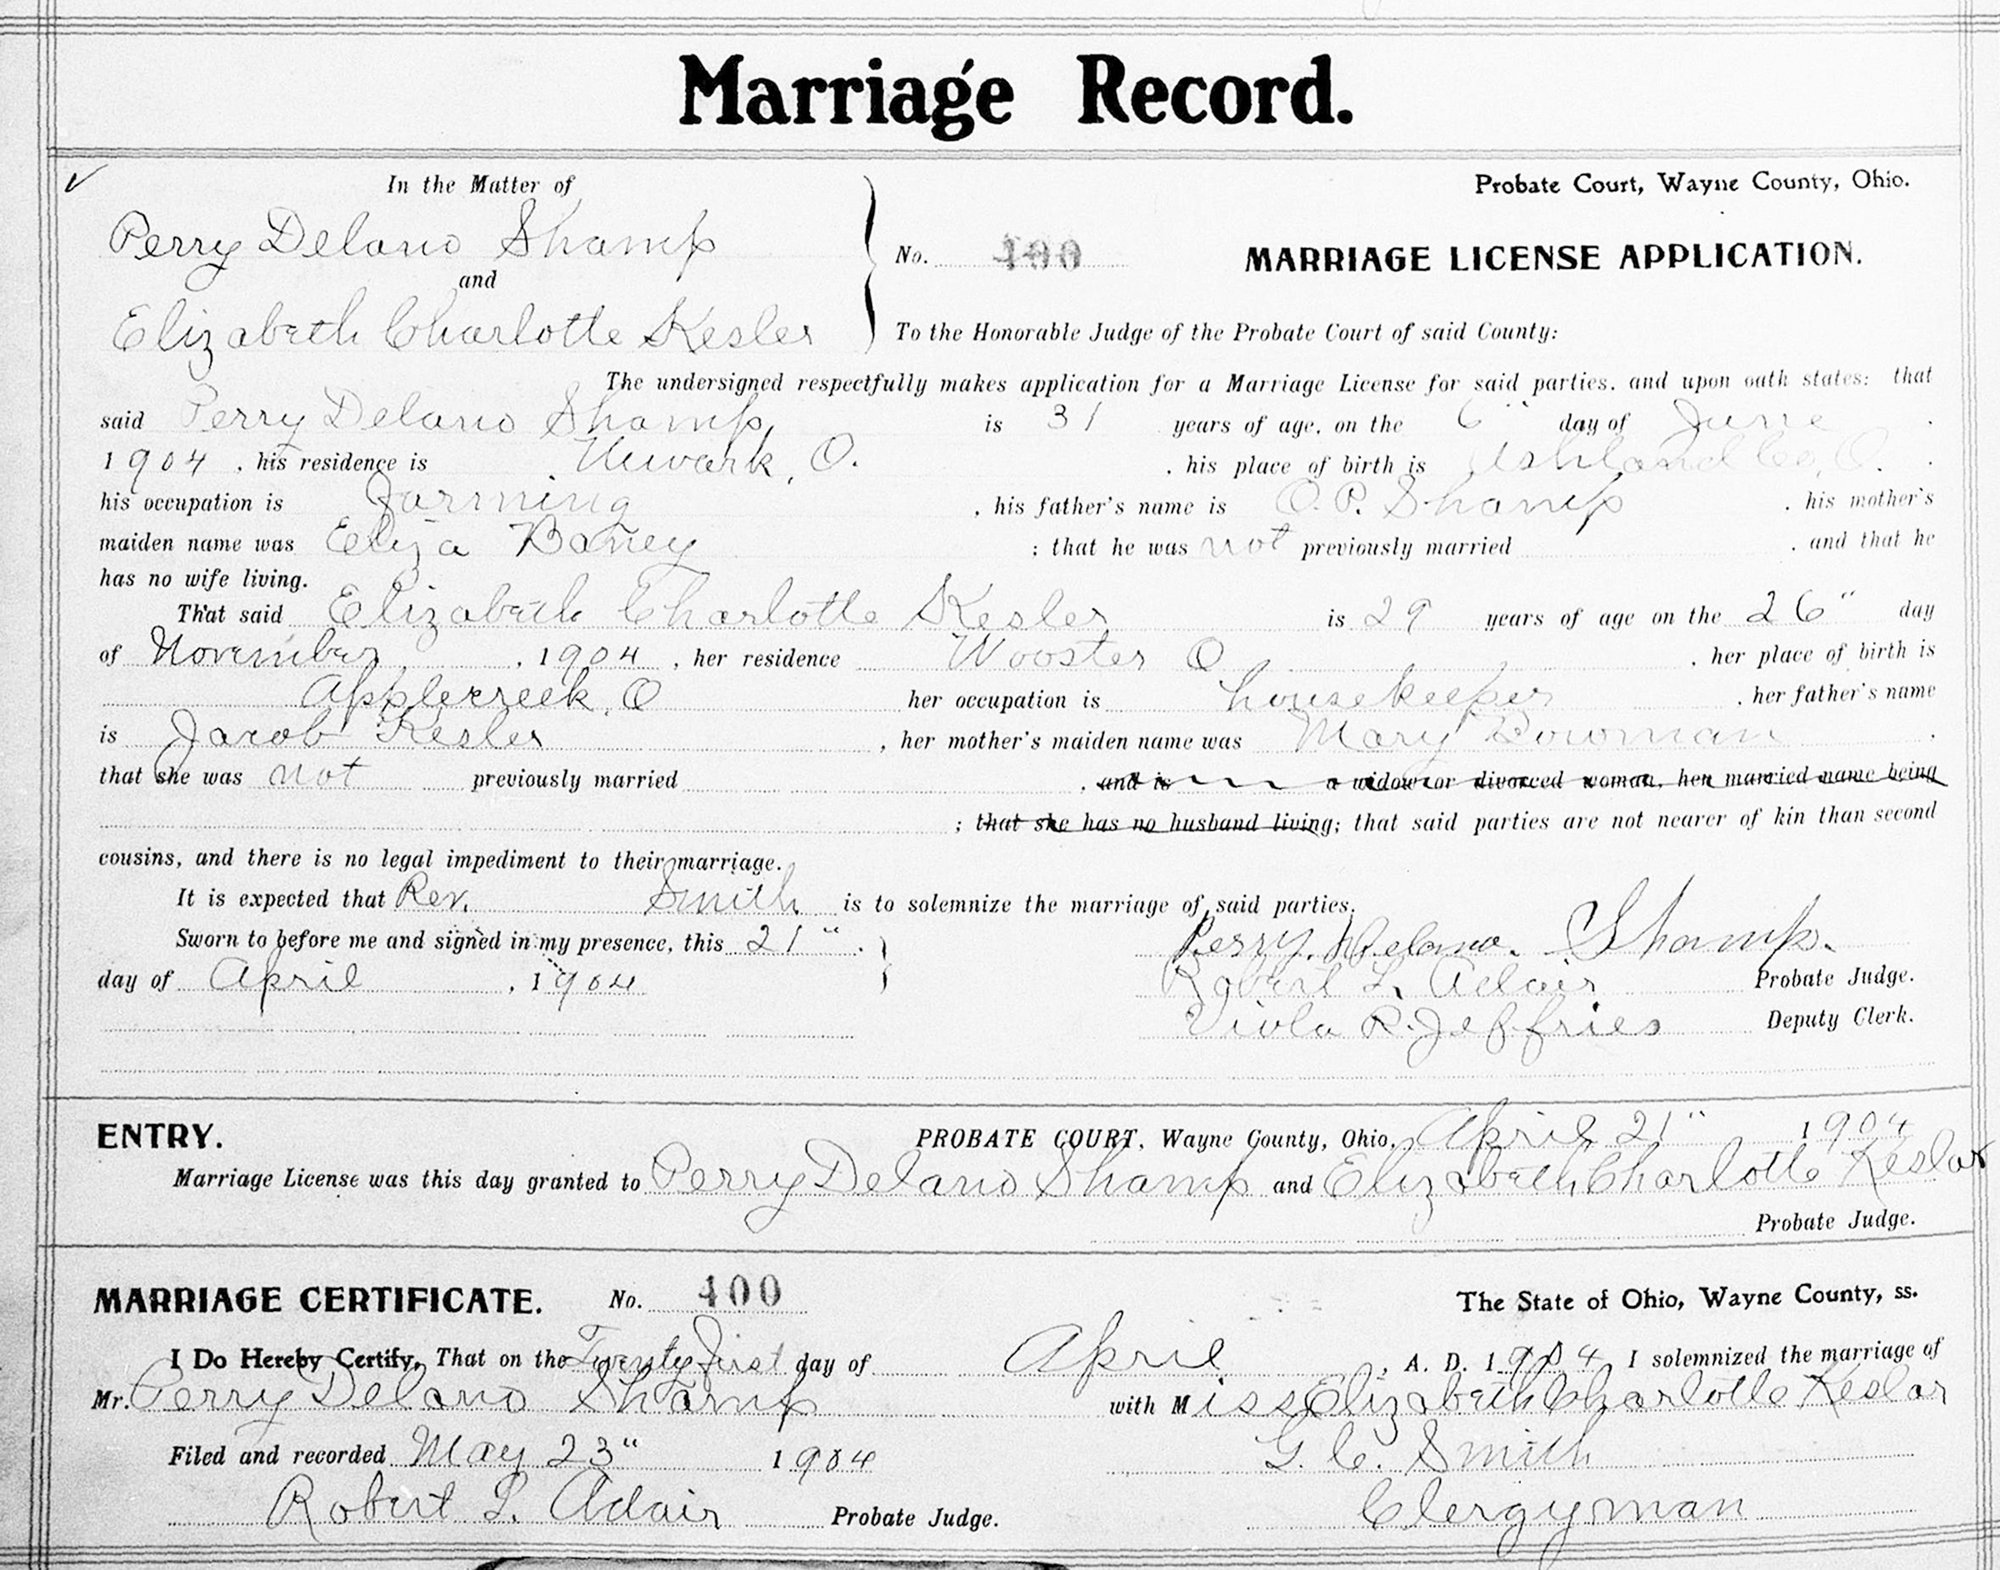 Marriage Record.
In the Matter of
Probate Court, Wayne County, Ohio.
Perry Delano Shamp
and
No. 400 MARRIAGE LICENSE APPLICATION.
Elizabeth Charlotte Kesler
To the Honorable Judge of the Probate Court of said County:
The undersigned respectfully makes application for a Marriage License for said parties, and upon oath states: that
said Perry Delano Shamp is 31 years of age, on the 6" day of June
1904, his residence is Newark, O. , his place of birth is Ashland Co, O.
his occupation is Farming , his father's name is O. P. Shamp , his mother's
maiden name was Eliza Boney ; that he was not previously married , and that he
has no wife living.
That said Elizabeth Charlotte Kesler is 29 years of age on the 26" day
of November, 1904, her residence Wooster O , her place of birth is
Applecreek, O her occupation is housekeeper , her father's name
is Jacob Kesler , her mother's maiden name was Mary Bowman
that she was not previously married , and is a widow or divorced woman, her married name being
; that she has no husband living; that said parties are not nearer of kin than second
cousins, and there is no legal impediment to their marriage.
It is expected that Rev. Smith is to solemnize the marriage of said parties.
Sworn to before me and signed in my presence, this 21" Perry. Delano. Shamp.
day of April, 1904 Robert L. Adair Probate Judge.
Viola R. Jeffries Deputy Clerk.
ENTRY. PROBATE COURT, Wayne County, Ohio, April 21" 1904
Marriage License was this day granted to Perry Delano Shamp and Elizabeth Charlotte Keslar
Probate Judge.
MARRIAGE CERTIFICATE. No. 400 The State of Ohio, Wayne County, ss.
I Do Hereby Certify, That on the Twenty first day of April, A. D. 1904, I solemnized the marriage of
Mr. Perry Delano Shamp with Miss Elizabeth Charlotte Keslar
Filed and recorded May 23" 1904 G. C. Smith
Robert L. Adair Probate Judge. Clergyman